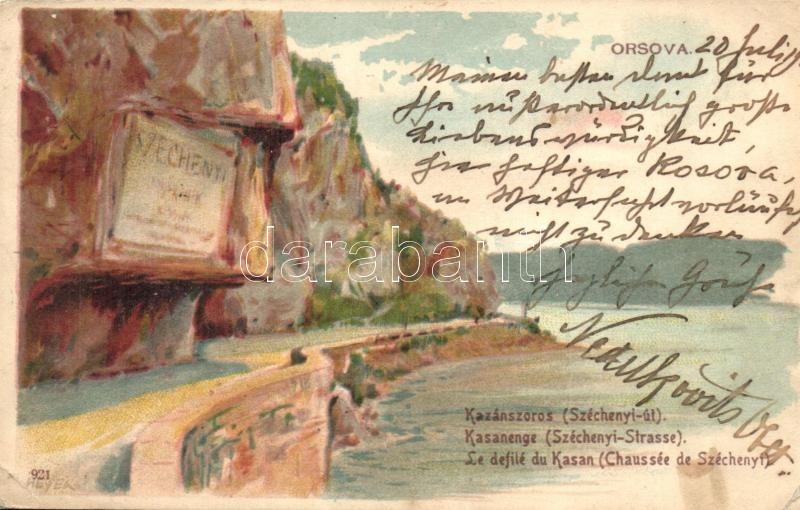 ORSOVA. 20 Juli
Meinen besten Dank für
Ihre außerordentlich große
Liebenswürdigkeit,
hier heftiger Kosova,
an Weiterfahrt vorläufig
nicht zu denken
herzliche Grüße
SZÉCHENYI
darabanth.com
Kazánszoros (Széchenyi-út).
Kasanenge (Széchenyi-Strasse).
Le defilé du Kasan (Chaussée de Széchenyi)
921